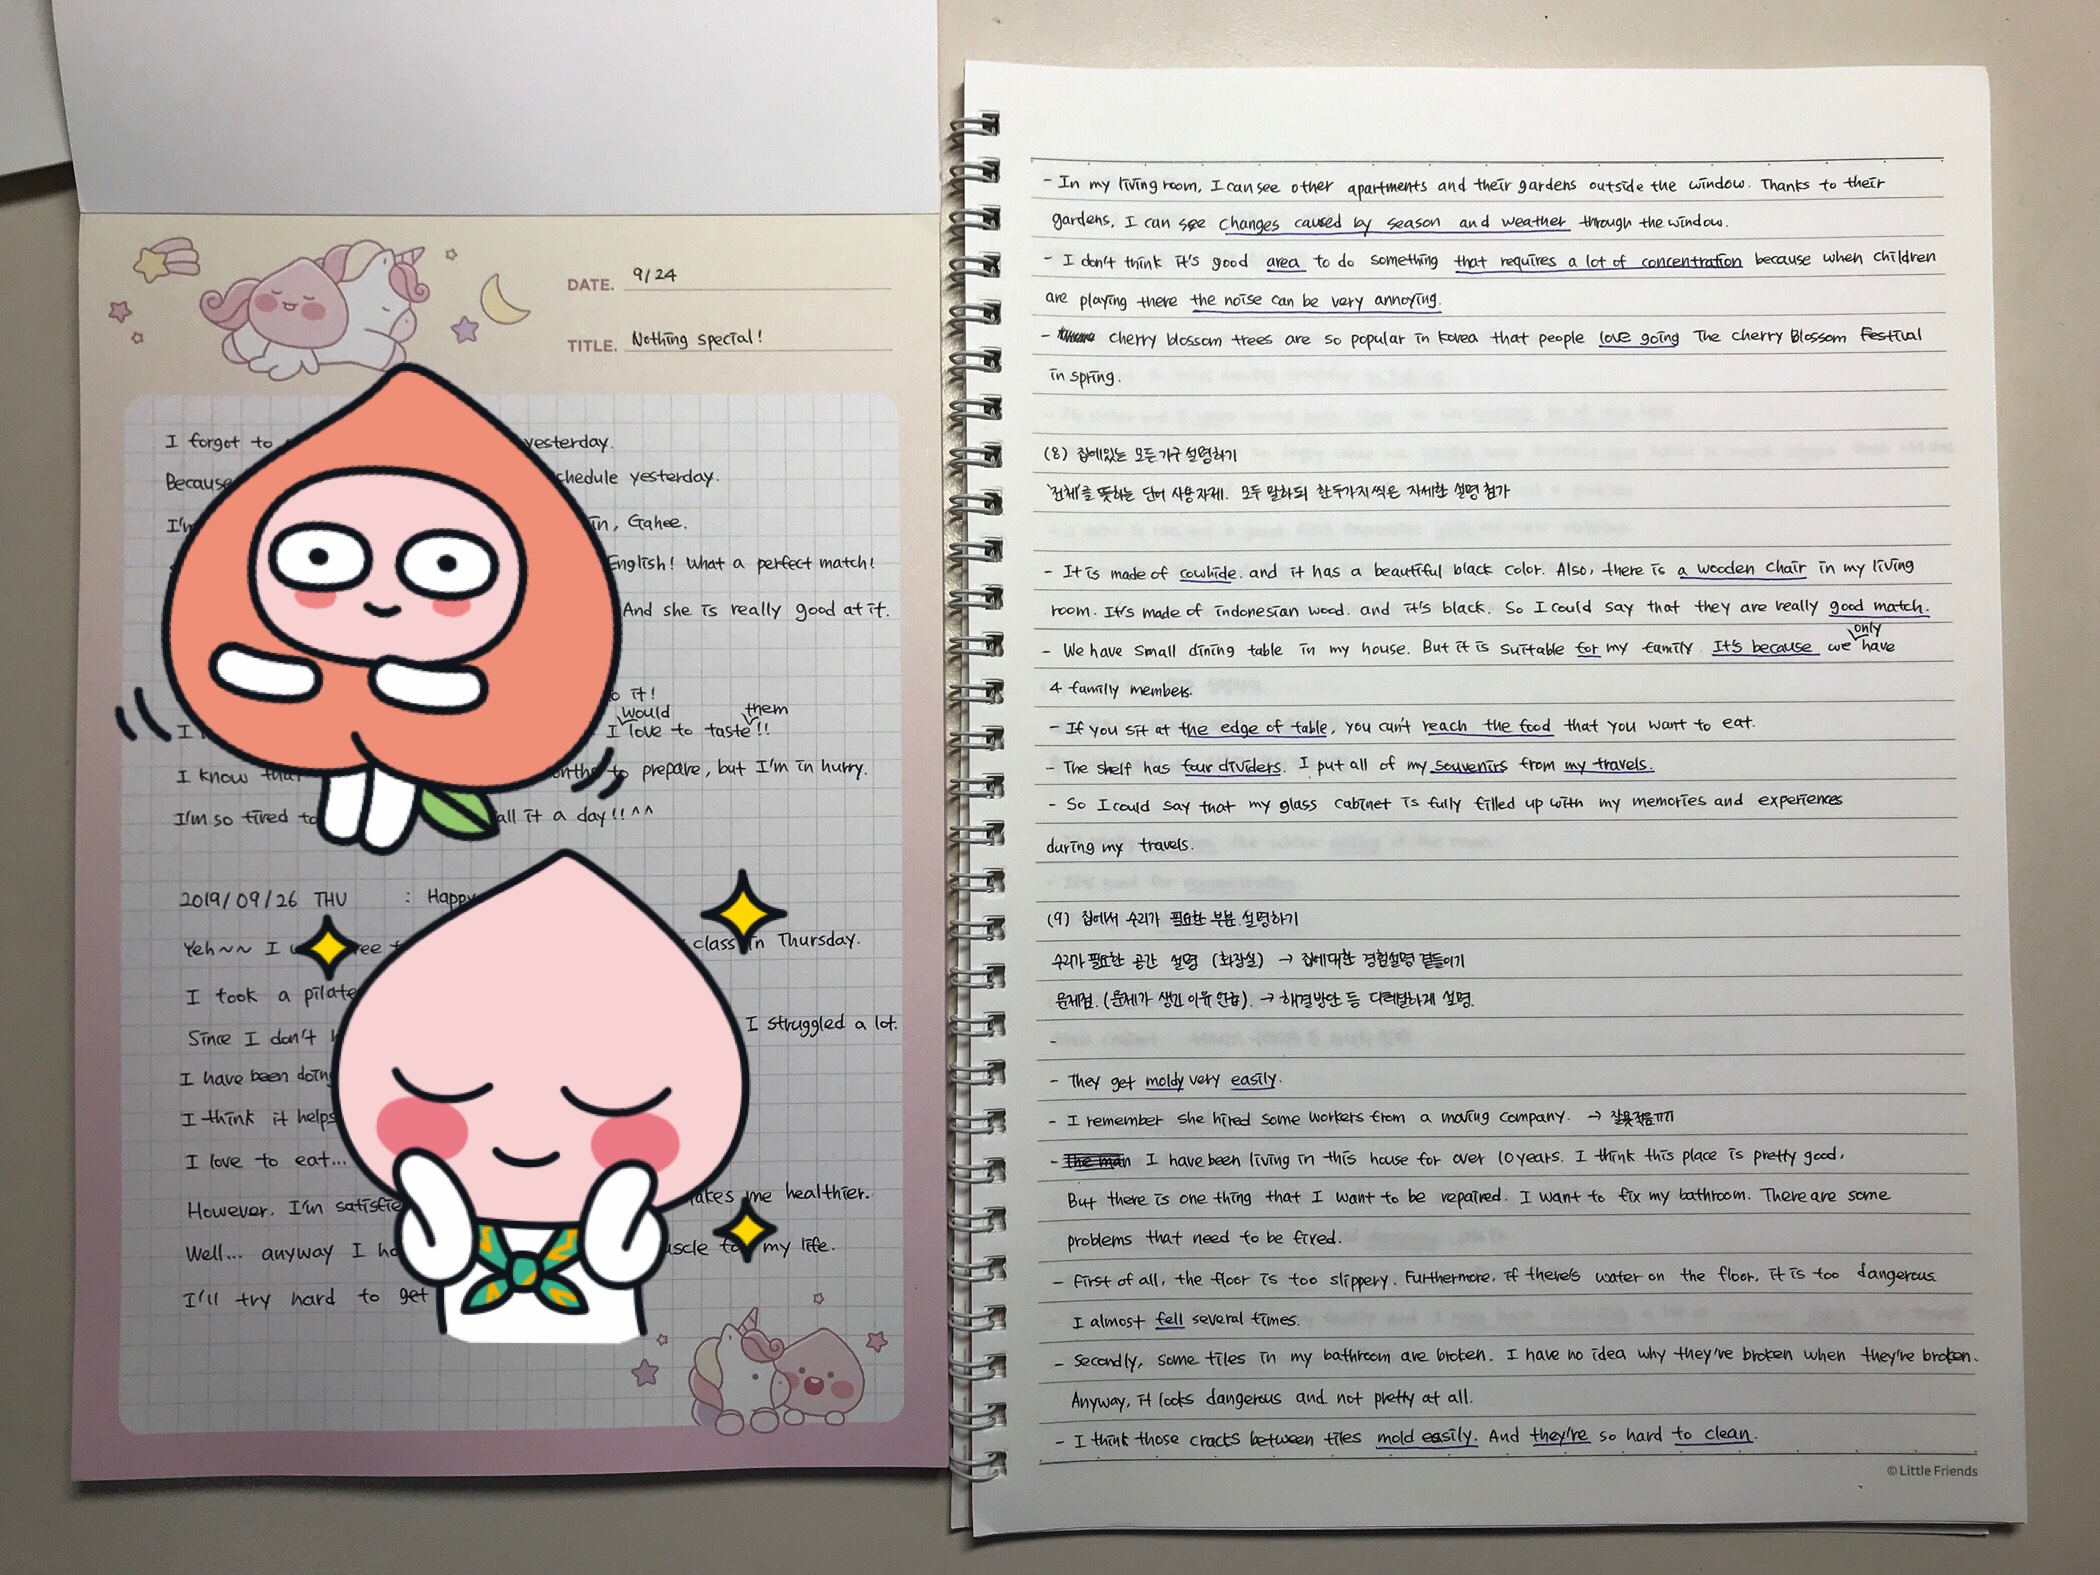 DATE. 9/24
TITLE. Nothing special!
I forgot to yesterday.
Because schedule yesterday.
I'm in, Gahee.
English! What a perfect match!
And she is really good at it.
o it!
would them
I I love to taste!!
I know that months to prepare, but I'm in hurry.
I'm so tired to call it a day!! ^^
2019/09/26 THU : Happy
Yeh~~ I free class in Thursday.
I took a pilate
Since I don't I struggled a lot.
I have been doing
I think it helps
I love to eat...
However, I'm satisfie makes me healthier.
Well... anyway I ha muscle for my life.
I'll try hard to get
- In my living room, I can see other apartments and their gardens outside the window. Thanks to their
gardens, I can see changes caused by season and weather through the window.
- I don't think it's good area to do something that requires a lot of concentration because when children
are playing there the noise can be very annoying.
- cherry blossom trees are so popular in Korea that people love going The cherry Blossom Festival
in spring.
(8) 집에있는 모든가구 설명하기
'전체'를 뜻하는 단어 사용 자제. 모두 말하되 한두가지씩은 자세한 설명 첨가
- It is made of cowhide. and it has a beautiful black color. Also, there is a wooden chair in my living
room. It's made of indonesian wood. and it's black. So I could say that they are really good match.
only
- We have small dining table in my house. But it is suitable for my family. It's because we have
4 family members.
- If you sit at the edge of table, you can't reach the food that you want to eat.
- The shelf has four dividers. I put all of my souvenirs from my travels.
- So I could say that my glass cabinet is fully filled up with my memories and experiences
during my travels.
(9) 집에서 수리가 필요한 부분 설명하기
수리가 필요한 공간 설명 (화장실) → 집에대한 경험설명 곁들이기
문제점. (문제가 생긴 이유 언급). → 해결방안 등 디테일하게 설명.
-
- They get moldy very easily.
- I remember she hired some workers from a moving company. → 잘못적음ㅠㅠ
- The man I have been living in this house for over 10 years. I think this place is pretty good,
But there is one thing that I want to be repaired. I want to fix my bathroom. There are some
problems that need to be fixed.
- First of all, the floor is too slippery. Furthermore, if there's water on the floor, it is too dangerous.
I almost fell several times.
- Secondly, some tiles in my bathroom are broken. I have no idea why they're broken when they're broken.
Anyway, it looks dangerous and not pretty at all.
- I think those cracks between tiles mold easily. And they're so hard to clean.
© Little Friends